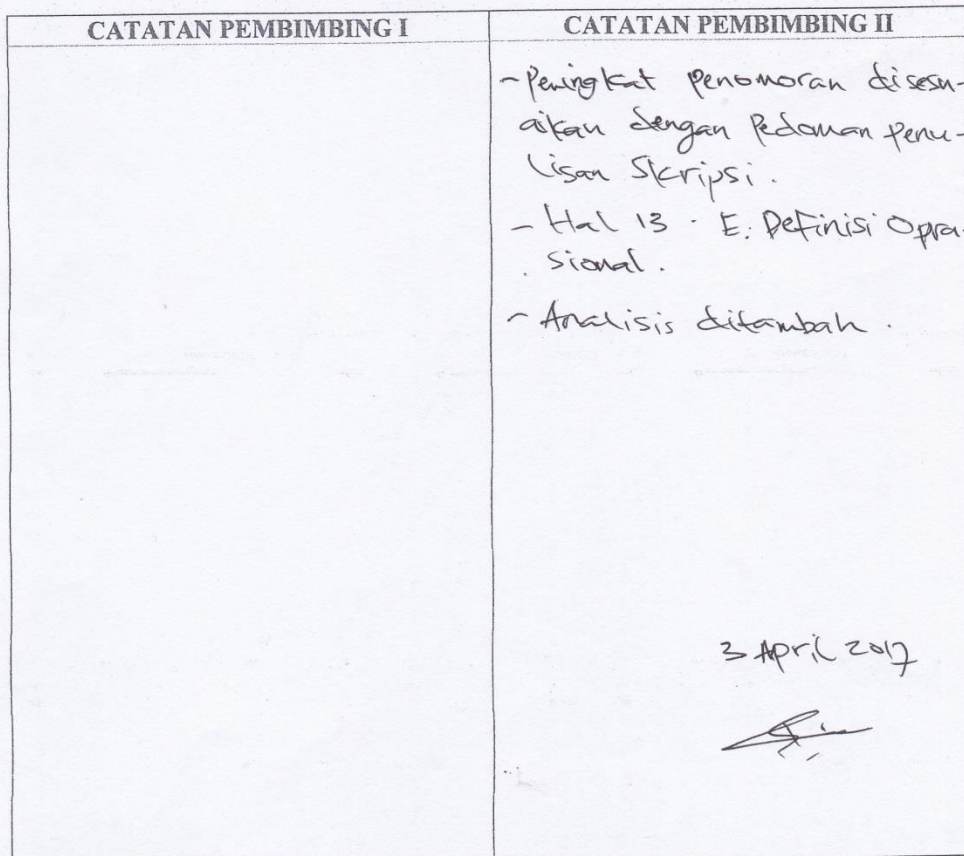 CATATAN PEMBIMBING I
CATATAN PEMBIMBING II
- Peringkat penomoran disesu-
aikan dengan Pedoman penu-
lisan Skripsi.
- Hal 13 . E. Definisi Opra-
sional.
- Analisis ditambah.
3 April 2017